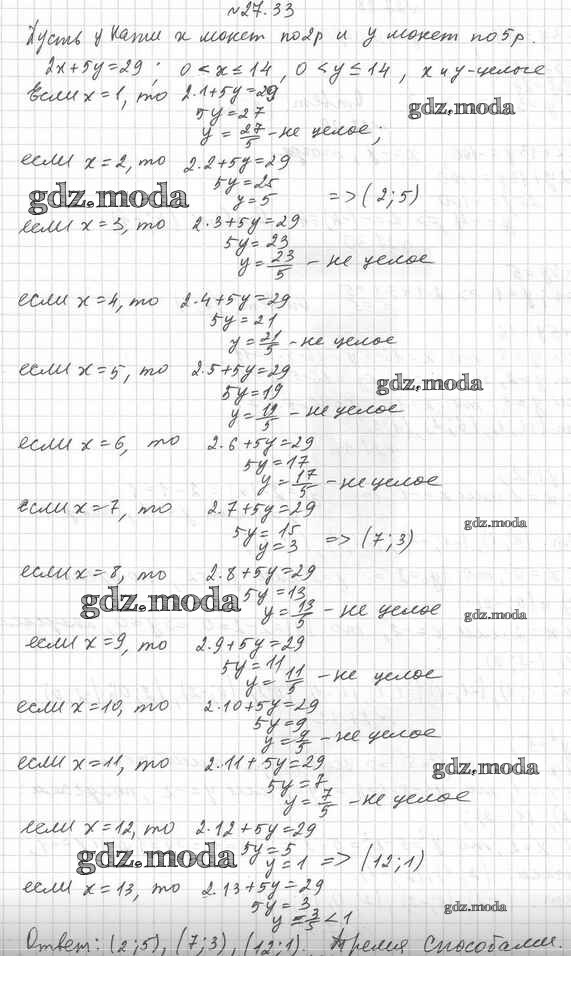 №27.33
Пусть у Кати x может по 2р и y может по 5р.
2x+5y=29; 0<x≤14, 0<y≤14, x и y-целые
Если x=1, то 2·1+5y=29
5y=27
gdz.moda
y=27/5-не целое;
если x=2, то 2·2+5y=29
5y=25
gdz.moda
y=5 => (2;5)
если x=3, то 2·3+5y=29
5y=23
y=23/5 - не целое
если x=4, то 2·4+5y=29
5y=21
y=21/5 - не целое
если x=5, то 2·5+5y=29
gdz.moda
5y=19
y=19/5 - не целое
если x=6, то 2·6+5y=29
5y=17
y=17/5 - не целое
если x=7, то 2·7+5y=29
gdz.moda
5y=15
y=3 => (7;3)
если x=8, то 2·8+5y=29
5y=13
gdz.moda
y=13/5 - не целое
gdz.moda
если x=9, то 2·9+5y=29
5y=11
y=11/5 - не целое
если x=10, то 2·10+5y=29
5y=9
y=9/5 - не целое
если x=11, то 2·11+5y=29
gdz.moda
5y=7
y=7/5 - не целое
если x=12, то 2·12+5y=29
5y=5
gdz.moda
y=1 => (12;1)
если x=13, то 2·13+5y=29
5y=3
gdz.moda
y=3/5<1
Ответ: (2;5), (7;3), (12;1). Тремя способами.